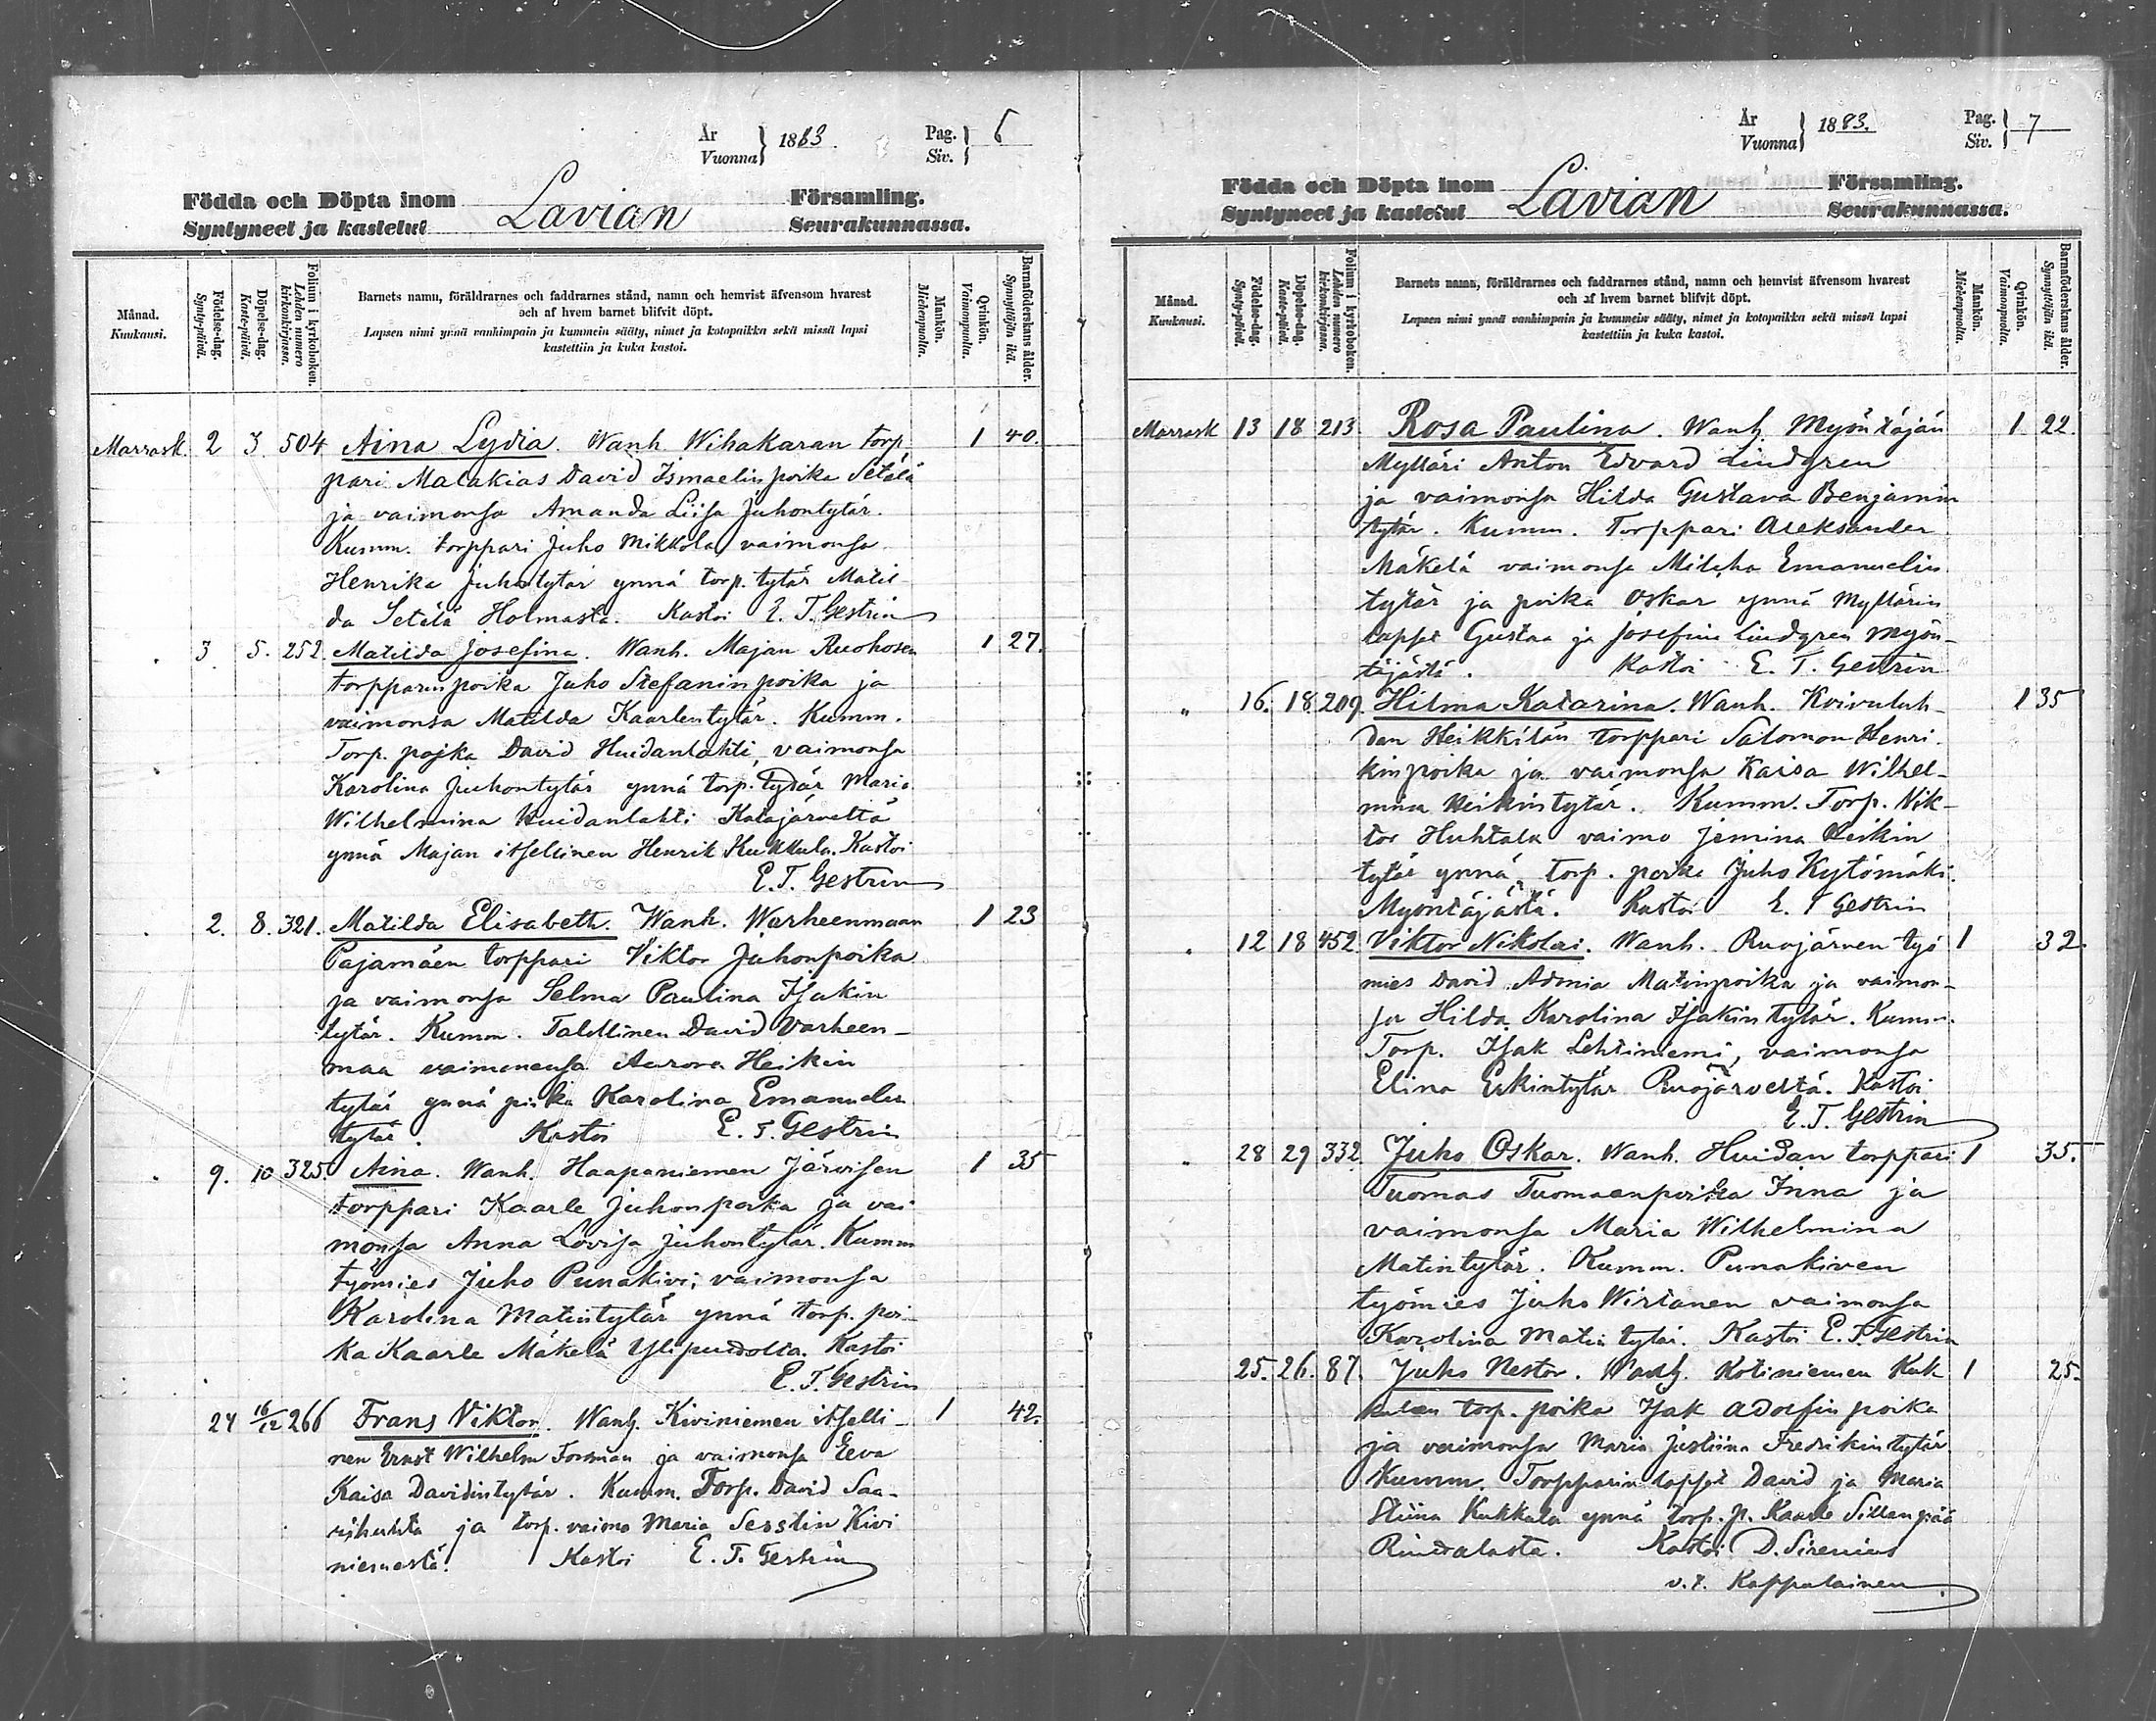 År
Vuonna } 1883.
Pag.
Siv. } 6
Födda och Döpta inom Lavian Församling.
Syntyneet ja kastetut Seurakunnassa.
Månad.
Kuukausi.
Födelse-dag.
Synty-päivä.
Döpelse-dag.
Kaste-päivä.
Folium i kyrkoboken.
Lehden numero kirkonkirjassa.
Barnets namn, föräldrarnes och faddrarnes stånd, namn och hemvist äfvensom hvarest
och af hvem barnet blifvit döpt.
Lapsen nimi ynnä vanhimpain ja kummein sääty, nimet ja kotopaikka sekä missä lapsi
kastettiin ja kuka kastoi.
Mankön.
Miehenpuolta.
Qvinkön.
Vaimonpuolta.
Barnaföderskans ålder.
Synnyttäjän ikä.
Marrask. 2 3. 504 Aina Lydia. Wanh. Wihakaran torp 1 40.
pari Malakias David Ismaelinpoika Setälä
ja vaimonsa Amanda Liisa Juhontytär.
Kumm. torppari Juho Mikkola, vaimonsa
Henrika Juhontytär ynnä torp. tytär Matil-
da Setälä Holmasta. Kastoi E. T. Gestrin
. 3. 5. 252. Matilda Josefina. Wanh. Majan Ruohosen 1 27.
torpparinpoika Juho Stefaninpoika ja
vaimonsa Matilda Kaarlentytär. Kumm.
Torp. pojka David Huidanlahti, vaimonsa
Karolina Juhontytär ynnä torp. tytär Maria
Wilhelmina Huidanlahti Katajärveltä
ynnä Majan itsellinen Henrik Kukkula. Kastoi
E. T. Gestrin
. 2. 8. 321. Matilda Elisabeth. Wanh. Warheenmaan 1 23
Pajamäen torppari Viktor Juhonpoika
ja vaimonsa Selma Paulina Isakin
tytär. Kumm. Talollinen David Varheen-
maa vaimonensa Aurora Heikin
tytär ynnä piika Karolina Emanuelin
tytär. Kastoi E. T. Gestrin
. 9. 10 325. Aina. Wanh. Haapaniemen Järvisen 1 35
torppari Kaarle Juhonpoika ja vai
monsa Anna Lovisa Juhontytär. Kumm
työmies Juho Punakivi, vaimonsa
Karolina Matintytär ynnä torp. poi-
ka Kaarle Mäkelä Kastoi
E. T. Gestrin
24 16/12 266 Frans Viktor. Wanh. Kiviniemen itselli- 1 42.
nen Ernst Wilhelm Forsman ja vaimonsa Eeva
Kaisa Davidintytär. Kumm. Torp. David Saa-
rihuhta ja torp. vaimo Maria Sesslin Kivi
niemestä. Kastoi E. T. Gestrin
År
Vuonna } 1883.
Pag.
Siv. } 7
Födda och Döpta inom Lavian Församling.
Syntyneet ja kastetut Seurakunnassa.
Månad.
Kuukausi.
Födelse-dag.
Synty-päivä.
Döpelse-dag.
Kaste-päivä.
Folium i kyrkoboken.
Lehden numero kirkonkirjassa.
Barnets namn, föräldrarnes och faddrarnes stånd, namn och hemvist äfvensom hvarest
och af hvem barnet blifvit döpt.
Lapsen nimi ynnä vanhimpain ja kummein sääty, nimet ja kotopaikka sekä missä lapsi
kastettiin ja kuka kastoi.
Mankön.
Miehenpuolta.
Qvinkön.
Vaimonpuolta.
Barnaföderskans ålder.
Synnyttäjän ikä.
Marrask 13 18 213 Rosa Paulina. Wanh. Myöntäjän 1 22.
Mylläri Anton Edvard Lindgren
ja vaimonsa Hilda Gustava Benjamin
tytär. Kumm. Torppari Aleksander
Mäkelä vaimonsa Emanuelin
tytär ja poika Oskar ynnä Myllärin
lapset Gustaa ja Josefina Lindgren Myön-
täjästä. Kastoi E. T. Gestrin
" 16. 18. 209. Hilma Katarina. Wanh. Koivuluh- 1 35
dan Heikkilän torppari Salomon Henri-
kinpoika ja vaimonsa Kaisa Wilhel-
mina Heikintytär. Kumm. Torp. Vik-
tor Huhtala vaimo Jemina Heikin
tytär ynnä torp. poika Juho Kytömäki.
Myöntäjästä. Kastoi E. T Gestrin
. 12 18 452 Viktor Nikolai. Wanh. Ruojärven työ 1 32.
mies David Adonia Matinpoika ja vaimon-
sa Hilda Karolina Isakintytär. Kumm.
Torp. Isak Lehtiniemi, vaimonsa
Elina Erkintytär Ruojärveltä. Kastoi
E. T. Gestrin
" 28 29 332 Juho Oskar. Wanh. Huidan torppari 1 35.
Tuomas Tuomaanpoika Inna ja
vaimonsa Maria Wilhelmina
Matintytär. Kumm. Punakiven
työmies Juho Wirtanen vaimonsa
Karolina Matin tytär. Kastoi E. T. Gestrin
25. 26. 87. Juho Nestor. Wanh. Kotiniemen Kuk 1 25.
kulan torp. poika Isak Adolfin poika
ja vaimonsa Maria Justiina Fredrikintytär.
Kumm. Torpparin lapset David ja Maria
Stiina Kukkula ynnä torp. p. Kaarle Sillanpää
Riutalasta. Kastoi D. Sirenius
v.t. Kappalainen